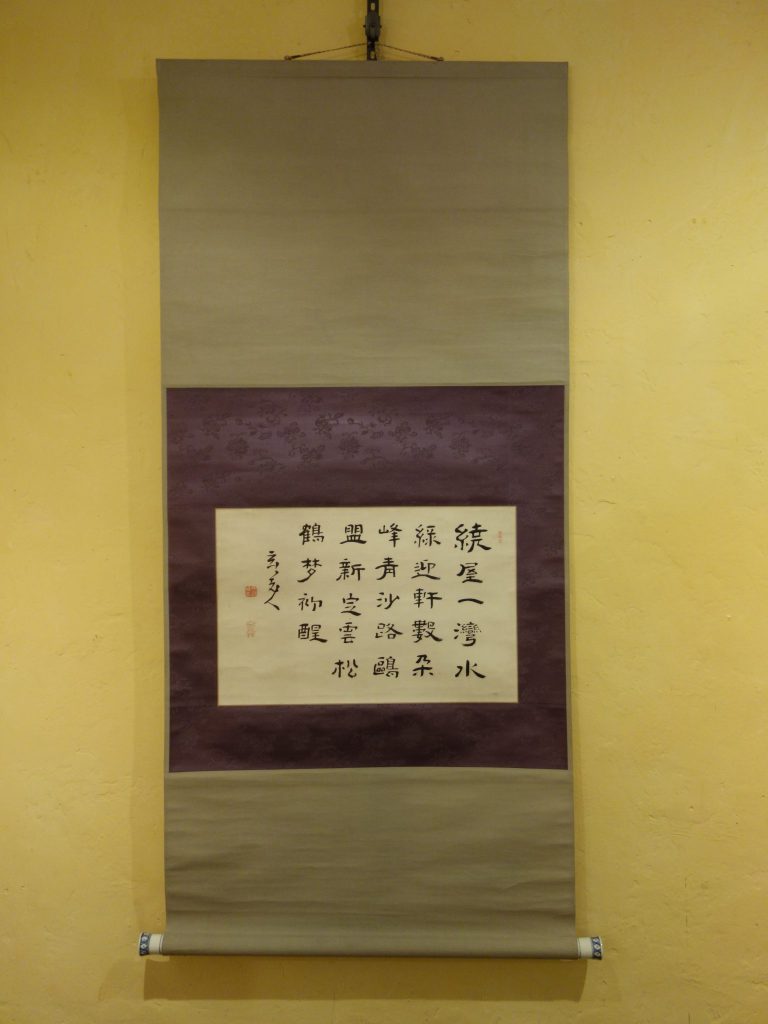 繞屋一灣水
綠迎軒數朵
峰青沙路鷗
盟新定雲松
鶴梦初醒